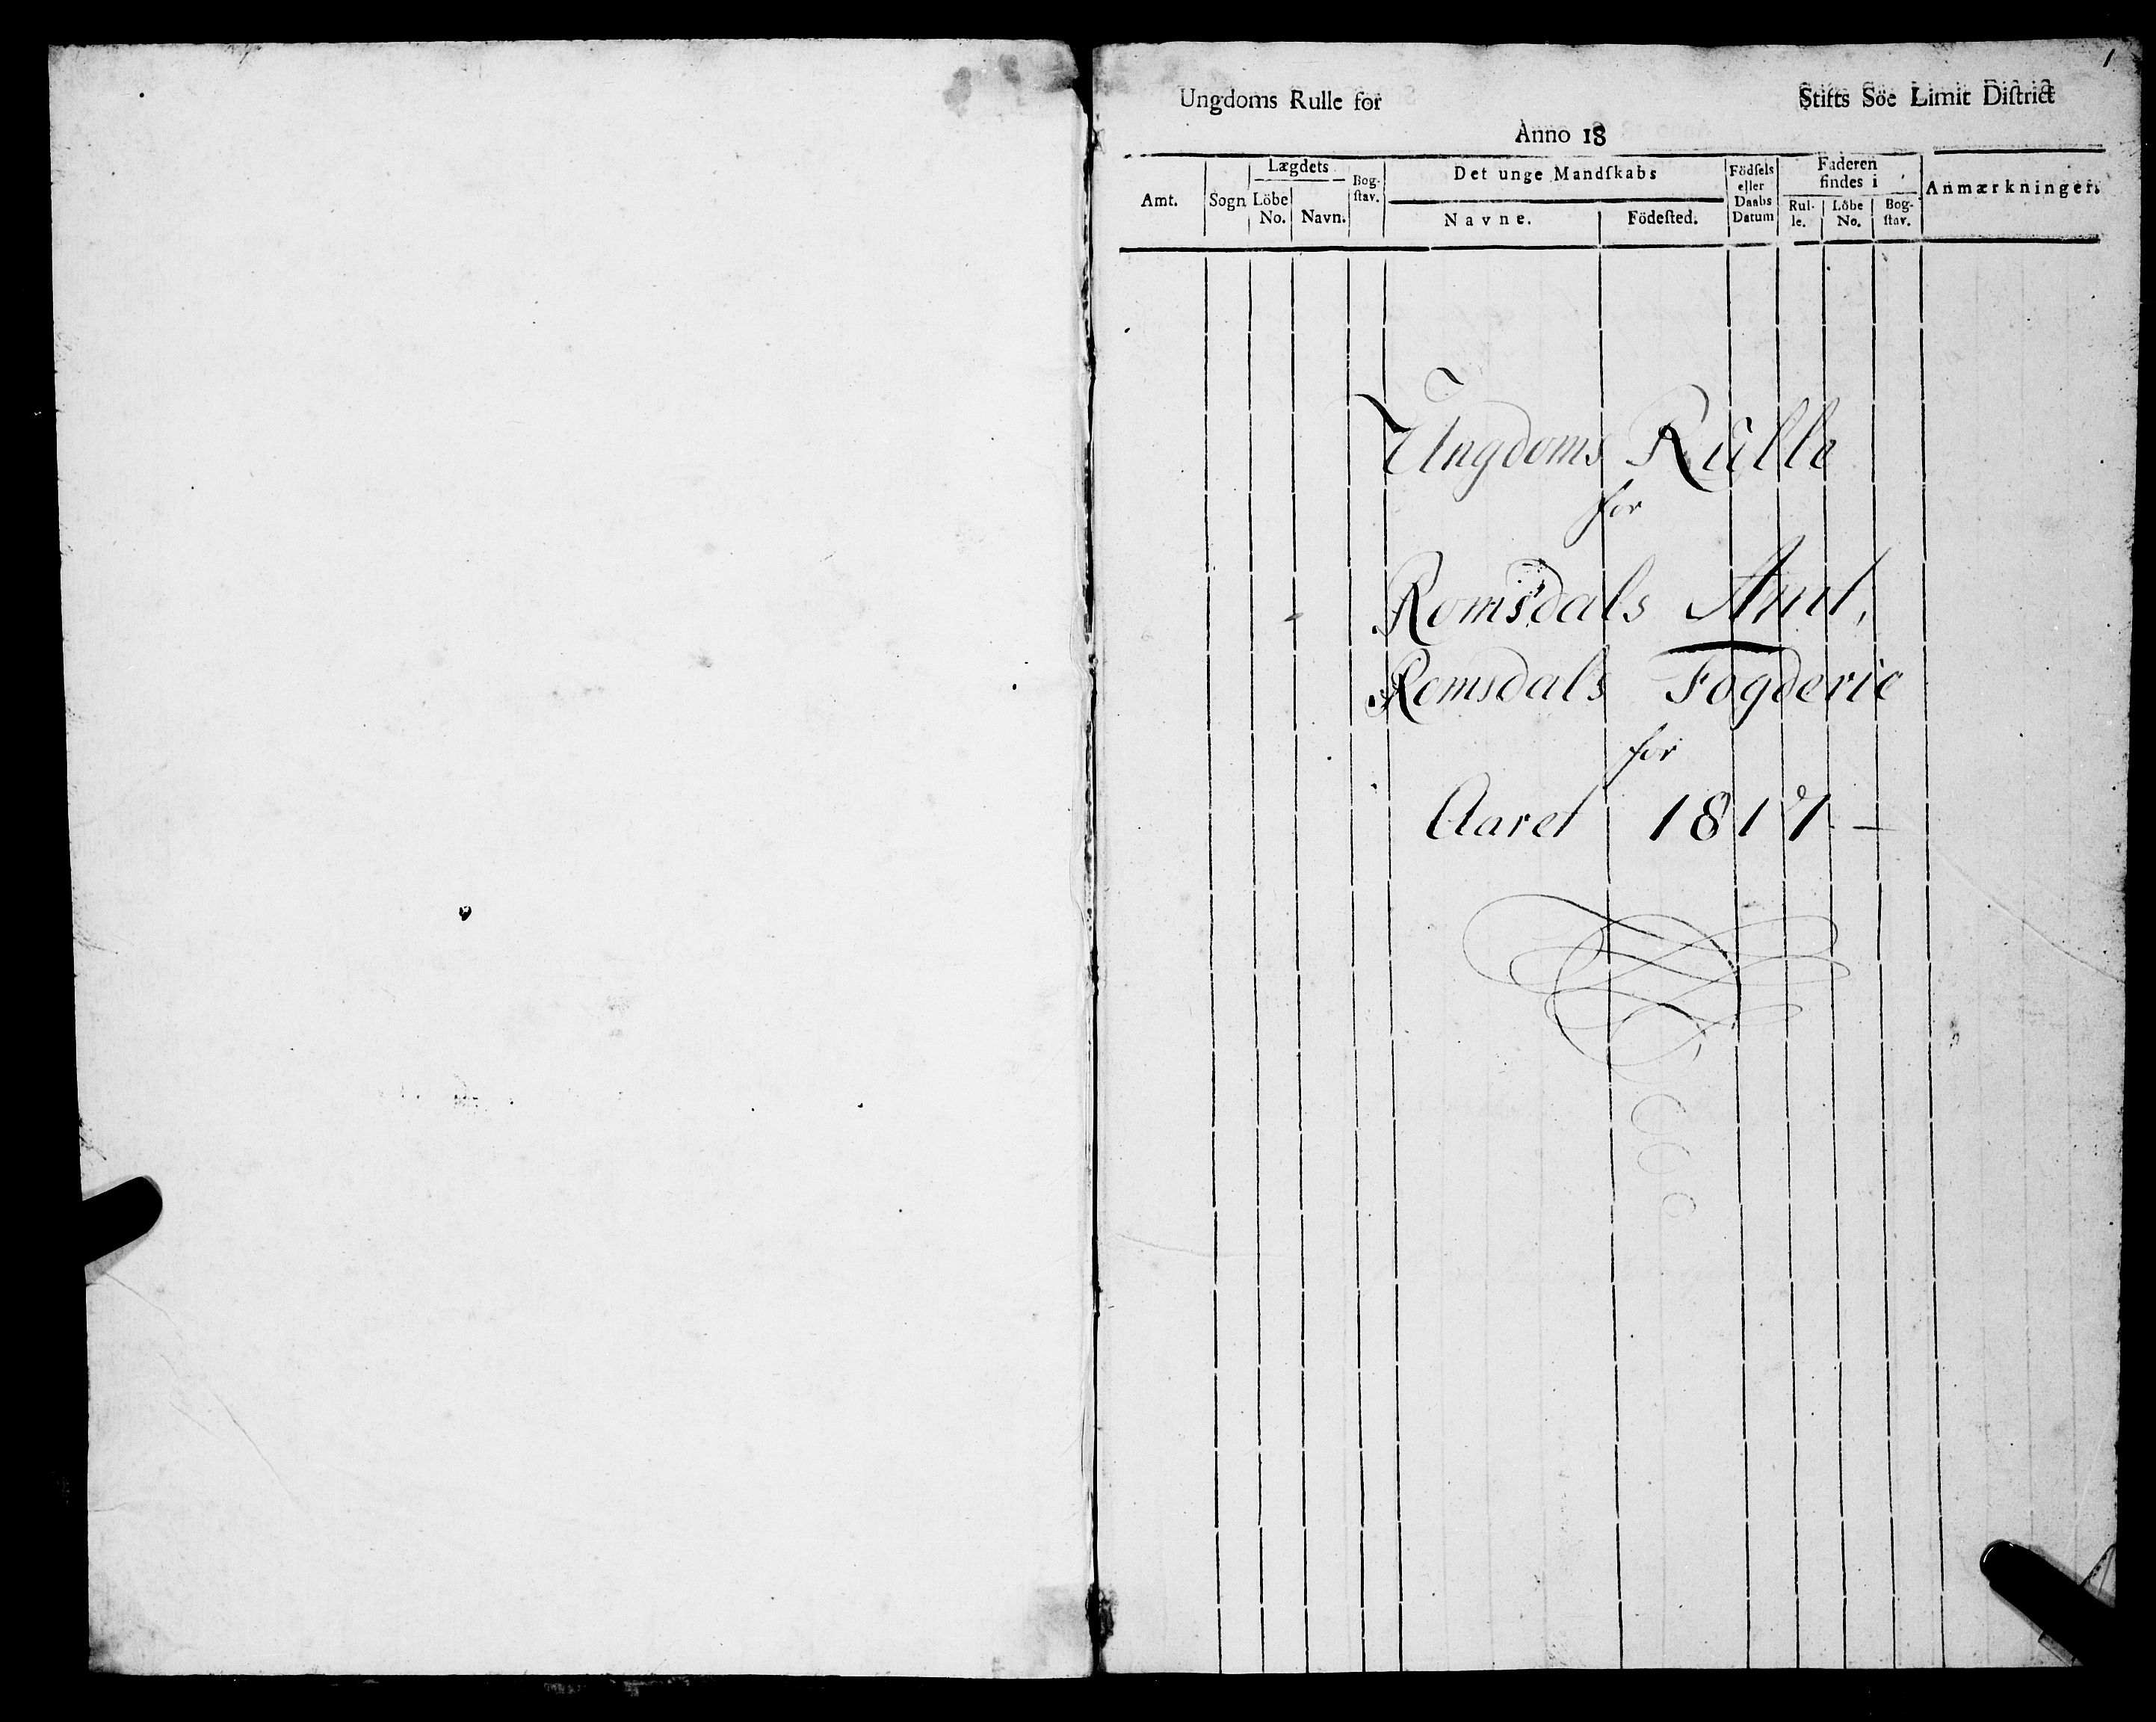 1
Ungdoms Rulle for Stifts Söe Limit Diſtrict
Anno 18
Amt.
Sogn
Lægdets
Löbe No.
Navn.
Bog-ſtav.
Det unge Mandſkabs
Navne.
Födeſted.
Födſels eller Daabs Datum
Faderen findes i
Rul-le.
Löbe No.
Bog-ſtav.
Anmærkninger.
Ungdoms Rulle
for
Romsdals Amt,
Romsdals Fogderie
for
Aaret 1817 —